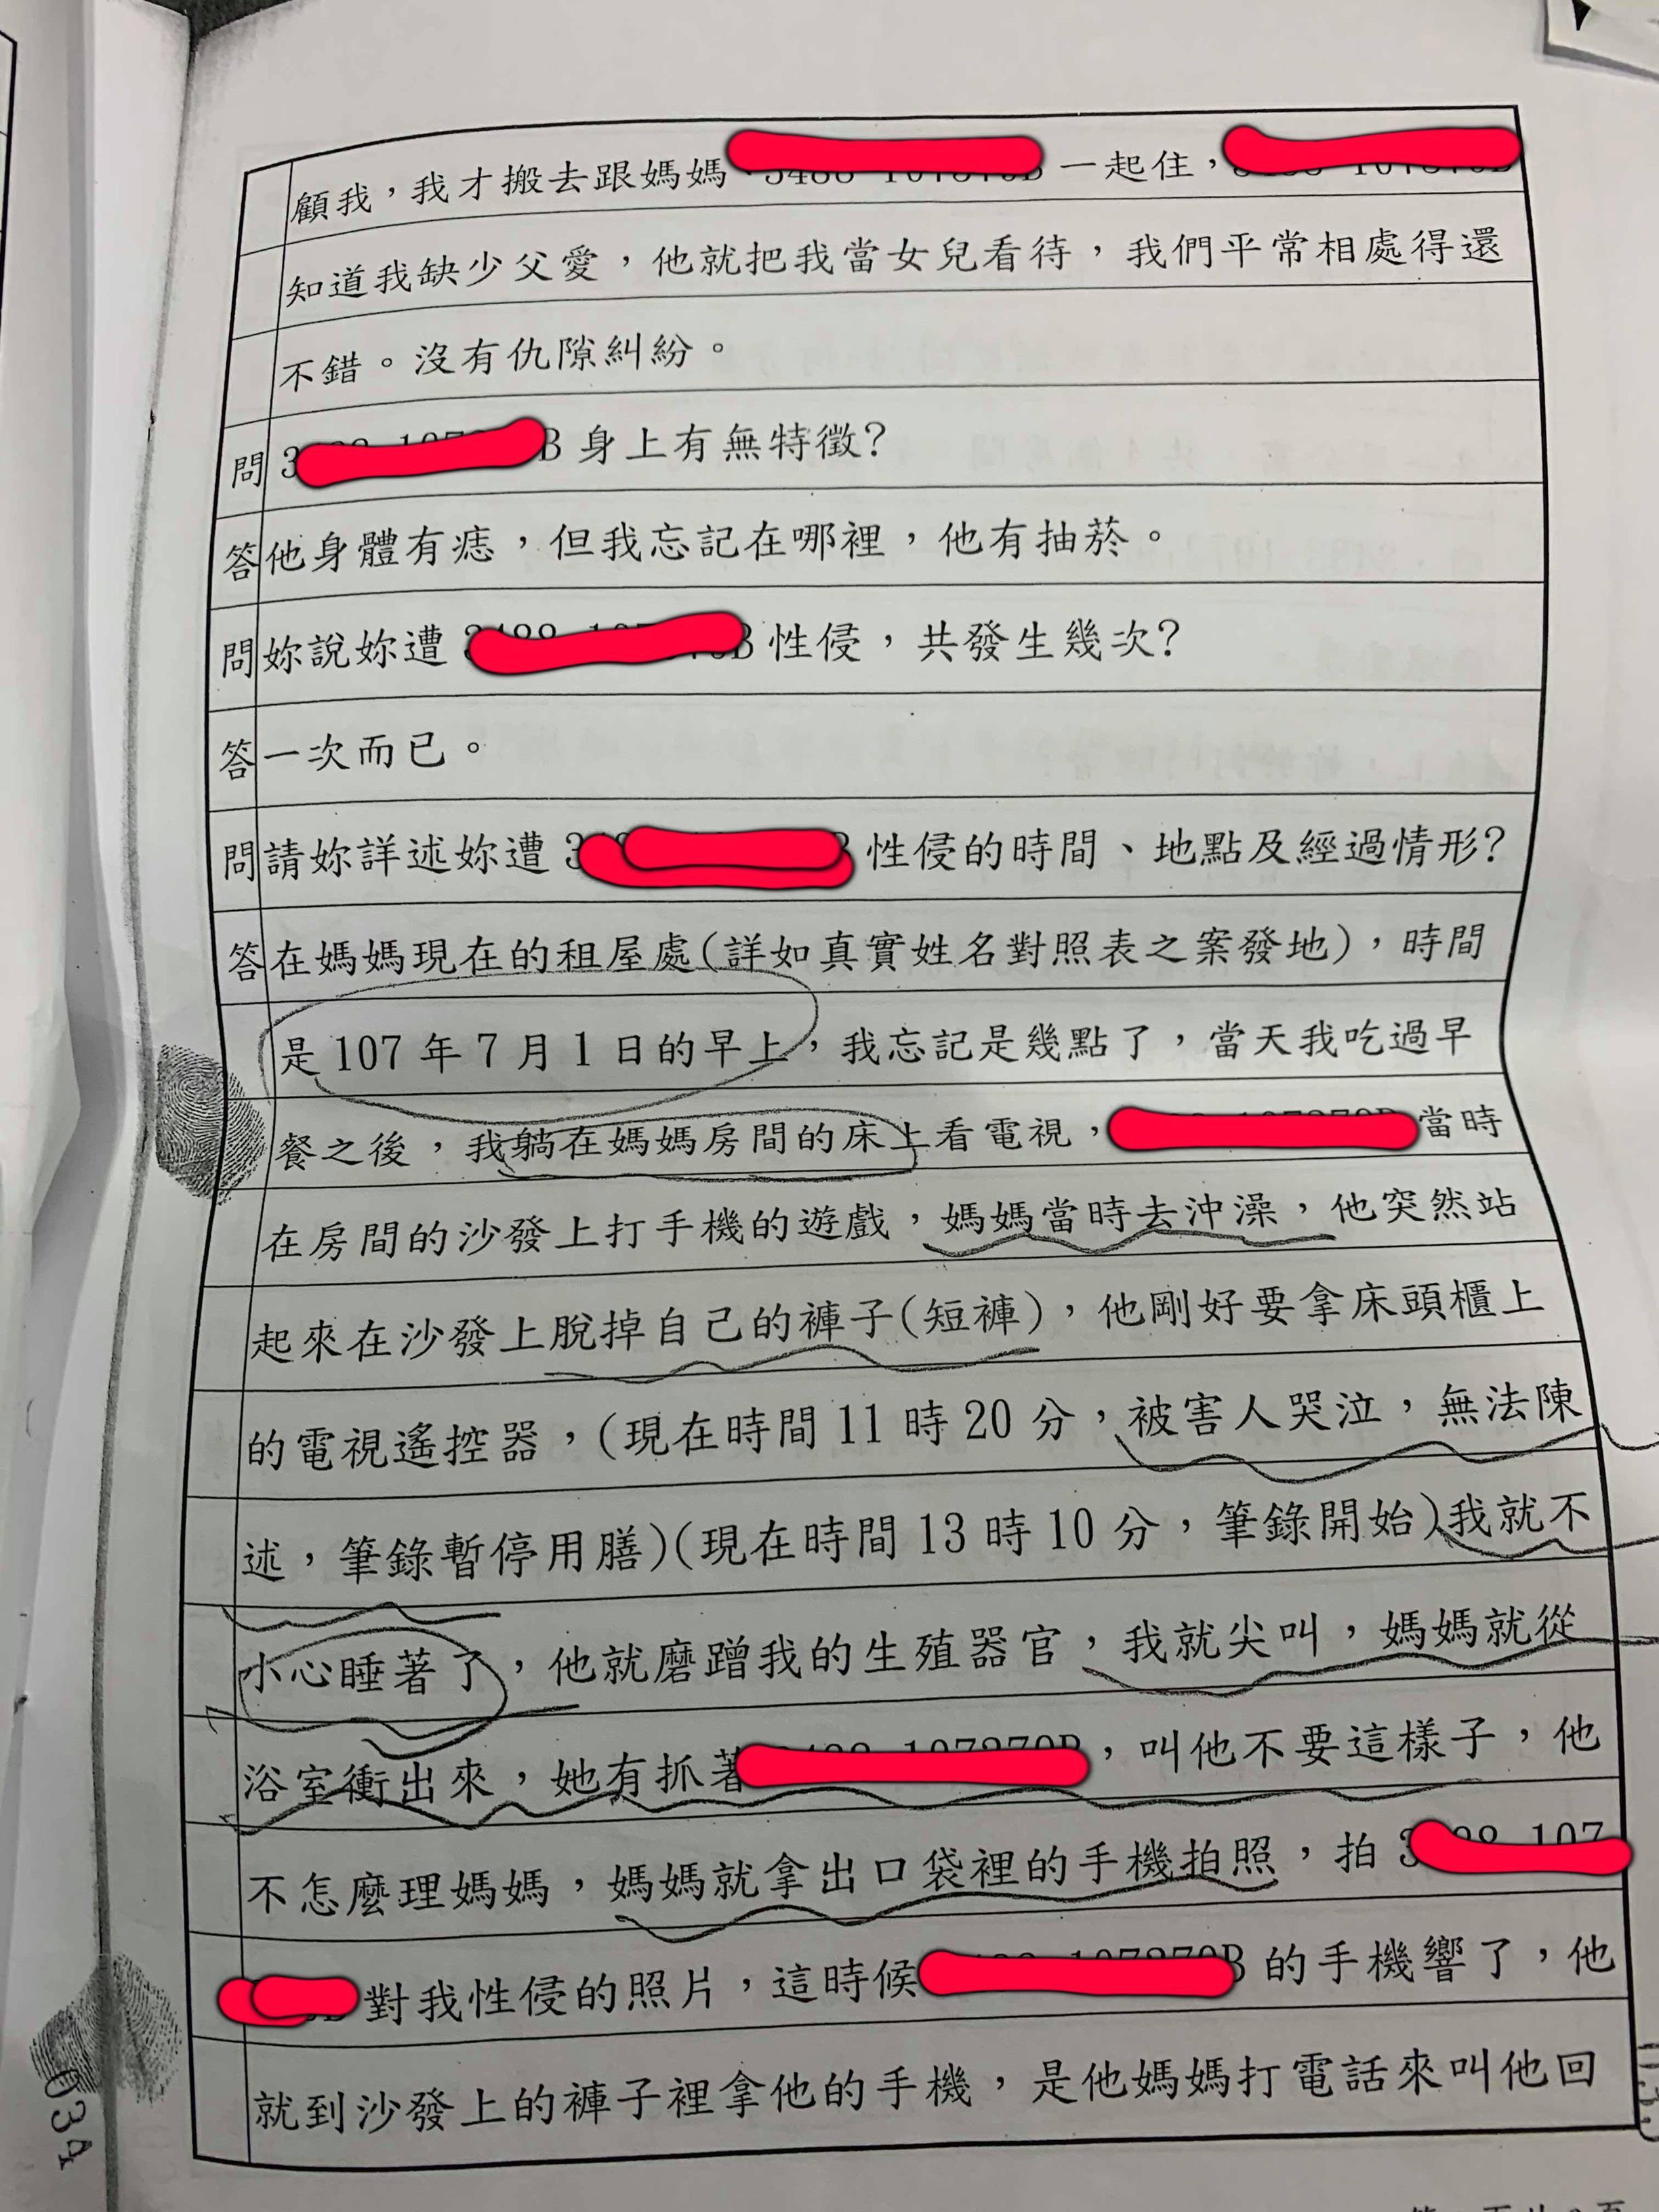 顧我，我才搬去跟媽媽、一起住，
知道我缺少父愛，他就把我當女兒看待，我們平常相處得還
不錯。沒有仇隙糾紛。
問 身上有無特徵？
答他身體有痣，但我忘記在哪裡，他有抽菸。
問妳說妳遭 性侵，共發生幾次？
答一次而已。
問請妳詳述妳遭 性侵的時間、地點及經過情形？
答在媽媽現在的租屋處(詳如真實姓名對照表之案發地)，時間
是 107 年 7 月 1 日的早上，我忘記是幾點了，當天我吃過早
餐之後，我躺在媽媽房間的床上看電視， 當時
在房間的沙發上打手機的遊戲，媽媽當時去沖澡，他突然站
起來在沙發上脫掉自己的褲子(短褲)，他剛好要拿床頭櫃上
的電視遙控器，(現在時間 11 時 20 分，被害人哭泣，無法陳
述，筆錄暫停用膳)(現在時間 13 時 10 分，筆錄開始)我就不
小心睡著了，他就磨蹭我的生殖器官，我就尖叫，媽媽就從
浴室衝出來，她有抓著 ，叫他不要這樣子，他
不怎麼理媽媽，媽媽就拿出口袋裡的手機拍照，拍
對我性侵的照片，這時候 的手機響了，他
就到沙發上的褲子裡拿他的手機，是他媽媽打電話來叫他回
034